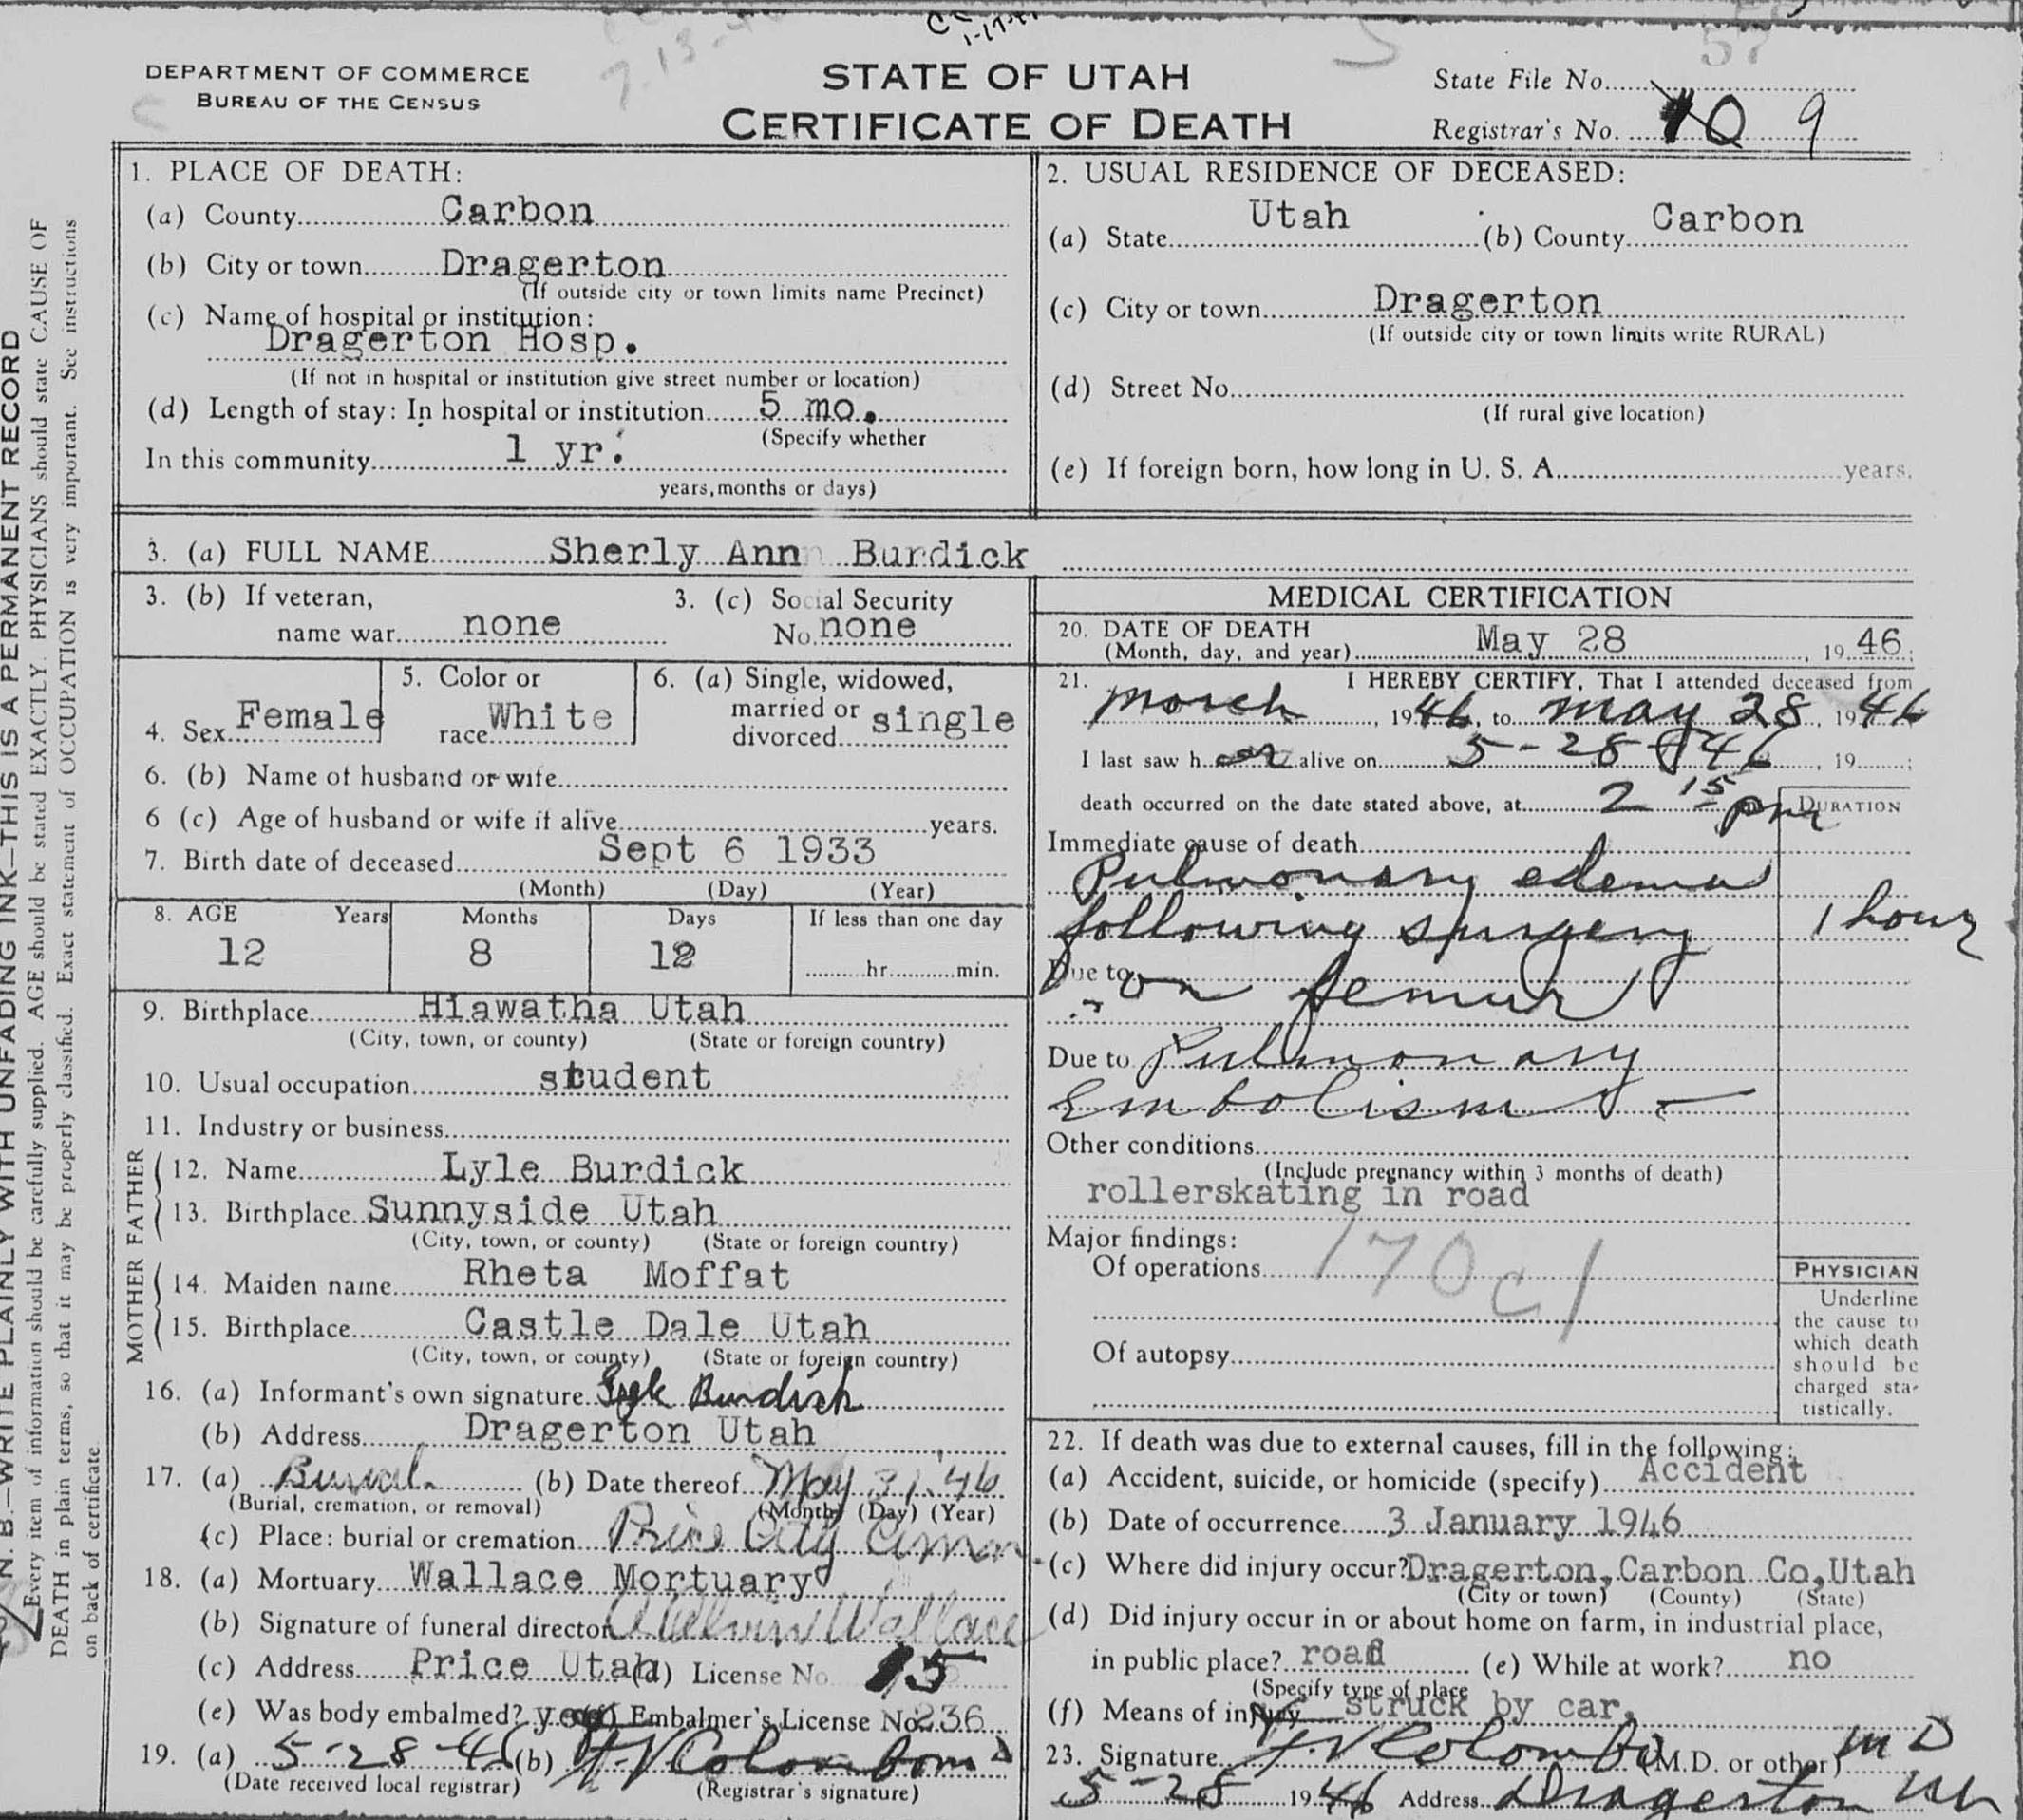 DEPARTMENT OF COMMERCE
BUREAU OF THE CENSUS
7-13-4
STATE OF UTAH
CERTIFICATE OF DEATH
57
State File No.
Registrar's No. 10 9
N. B.—WRITE PLAINLY WITH UNFADING INK—THIS IS A PERMANENT RECORD
Every item of information should be carefully supplied. AGE should be stated EXACTLY. PHYSICIANS should state CAUSE OF
DEATH in plain terms, so that it may be properly classified. Exact statement of OCCUPATION is very important. See instructions
on back of certificate
1. PLACE OF DEATH:
(a) County Carbon
(b) City or town Dragerton
(If outside city or town limits name Precinct)
(c) Name of hospital or institution:
Dragerton Hosp.
(If not in hospital or institution give street number or location)
(d) Length of stay: In hospital or institution 5 mo.
(Specify whether
In this community 1 yr.
years, months or days)
2. USUAL RESIDENCE OF DECEASED:
(a) State Utah (b) County Carbon
(c) City or town Dragerton
(If outside city or town limits write RURAL)
(d) Street No.
(If rural give location)
(e) If foreign born, how long in U. S. A. years.
3. (a) FULL NAME Sherly Ann Burdick
3. (b) If veteran, name war none
3. (c) Social Security No. none
4. Sex Female
5. Color or race White
6. (a) Single, widowed, married or divorced single
6. (b) Name of husband or wife
6 (c) Age of husband or wife if alive years.
7. Birth date of deceased Sept 6 1933
(Month) (Day) (Year)
8. AGE Years Months Days If less than one day
12 8 12 hr. min.
9. Birthplace Hiawatha Utah
(City, town, or county) (State or foreign country)
10. Usual occupation student
11. Industry or business
FATHER
12. Name Lyle Burdick
13. Birthplace Sunnyside Utah
(City, town, or county) (State or foreign country)
MOTHER
14. Maiden name Rheta Moffat
15. Birthplace Castle Dale Utah
(City, town, or county) (State or foreign country)
16. (a) Informant's own signature Lyle Burdick
(b) Address Dragerton Utah
17. (a) Burial (b) Date thereof May 31, '46
(Burial, cremation, or removal) (Month) (Day) (Year)
(c) Place: burial or cremation Price City
18. (a) Mortuary Wallace Mortuary
(b) Signature of funeral director Wallace
(c) Address Price Utah (d) License No. 15
(e) Was body embalmed? yes (f) Embalmer's License No. 236
19. (a) 5-28-46 (b) Colombo MD
(Date received local registrar) (Registrar's signature)
MEDICAL CERTIFICATION
20. DATE OF DEATH
(Month, day, and year) May 28, 1946
21. I HEREBY CERTIFY, That I attended deceased from
March, 1946, to May 28, 1946
I last saw her alive on 5-28-46, 19 ;
death occurred on the date stated above, at 2 15 pm
DURATION
Immediate cause of death
Pulmonary edema
following surgery 1 hour
Due to on femur
Due to Pulmonary
Embolism
Other conditions
(Include pregnancy within 3 months of death)
rollerskating in road
Major findings:
Of operations
170c1
Of autopsy
PHYSICIAN
Underline
the cause to
which death
should be
charged sta-
tistically.
22. If death was due to external causes, fill in the following:
(a) Accident, suicide, or homicide (specify) Accident
(b) Date of occurrence 3 January 1946
(c) Where did injury occur? Dragerton, Carbon Co, Utah
(City or town) (County) (State)
(d) Did injury occur in or about home on farm, in industrial place,
in public place? road (e) While at work? no
(Specify type of place
(f) Means of injury struck by car.
23. Signature Colombo (M.D. or other) MD
5-28 1946 Address Dragerton